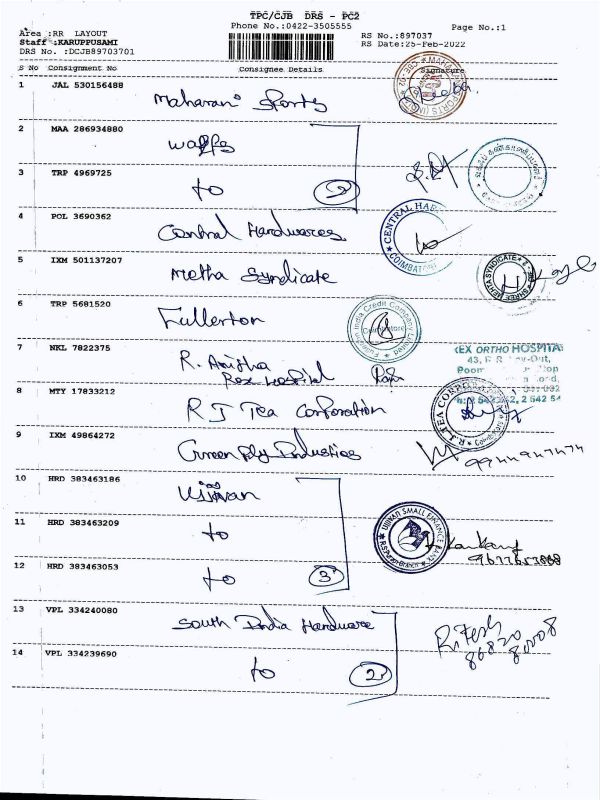 TPC/CJB DRS - PC2
Phone No.:0422-3505555
Page No.:1
Area :RR LAYOUT
Staff :KARUPPUSAMI
DRS No. :DCJB89703701
RS No.:897037
RS Date:25-Feb-2022
S No Consignment No Consignee Details Signature
1 JAL 530156488 Maharani Sports
2 MAA 286934880
3 TRP 4969725 to 2
4 POL 3690362 Central Hardwares
CENTRAL HA
COIMBATORE
5 IXM 501137207 Metha Syndicate
6 TRP 5681520 Fullerton
Fullerton India Credit Company Limited
Coimbatore
7 NKL 7822375 R. Anitha
Rex Hospital
REX ORTHO HOSPITAL
8 MTY 17833212 R J Tea Corporation
R.J. TEA CORPORATION
9 IXM 49864272 Green Ply Industries
10 HRD 383463186 Ujjivan
UJJIVAN SMALL FINANCE BANK
11 HRD 383463209 to
12 HRD 383463053 to 3
13 VPL 334240080 South India Hardware
Ritesh
86820
80008
14 VPL 334239690 to 2